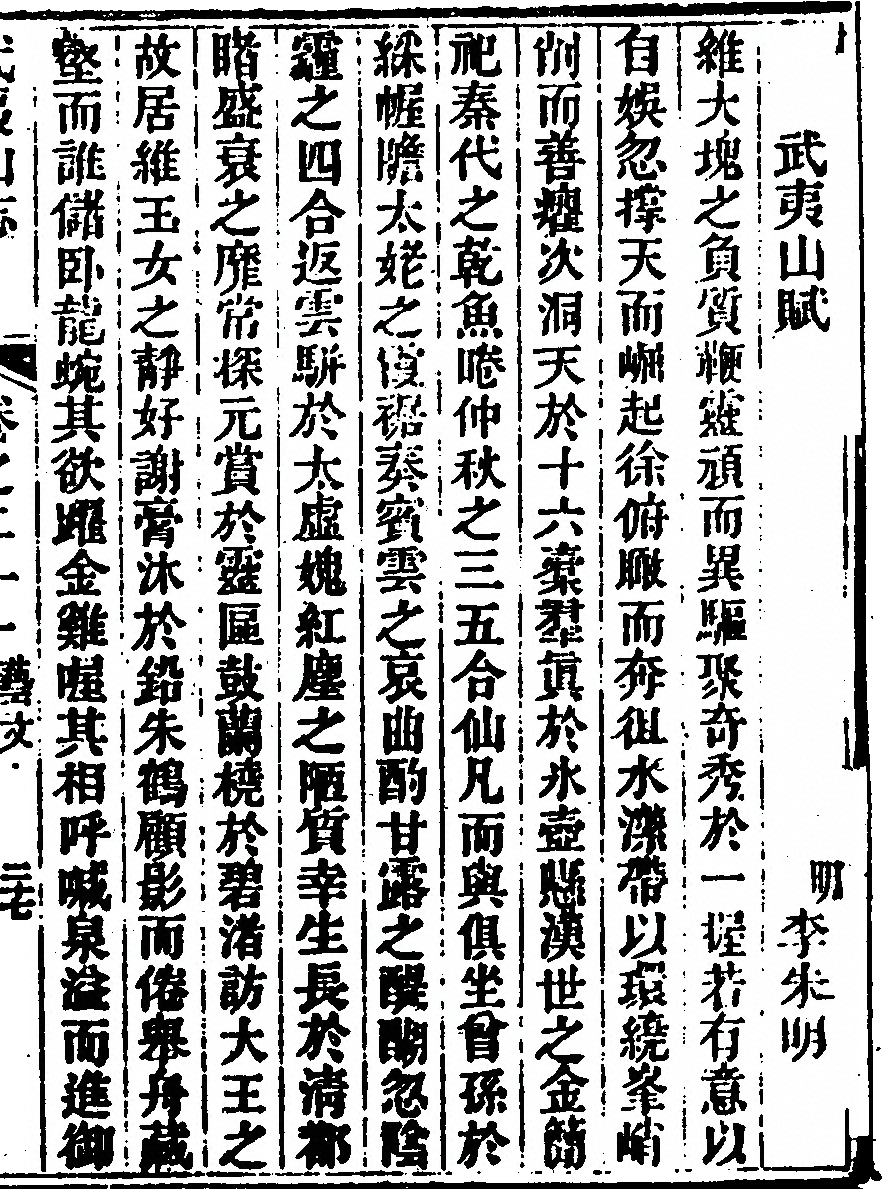 武夷山賦
明李朱明
維大塊之負質鞭靈頑而異驅聚奇秀於一握若有意以
自娛忽撐天而崛起徐俯瞰而奔徂水瀠帶以環繞峯峭
削而善癯次洞天於十六橐羣眞於氷壺懸漢世之金簡
祀秦代之乾魚睠仲秋之三五合仙凡而與俱坐曾孫於
綵幄瞻太姥之霞裾奏賓雲之哀曲酌甘露之醍醐忽陰
霾之四合返雲駢於太虛媿紅塵之陋質幸生長於清都
睹盛衰之靡常探元賞於靈區鼓蘭橈於碧渚訪大王之
故居維玉女之靜好謝膏沐於鉛朱鶴顧影而倦舉舟藏
壑而誰儲臥龍蜿其欲躍金雞喔其相呼喊泉溢而進御
武夷山志
卷之二十一
藝文
二七